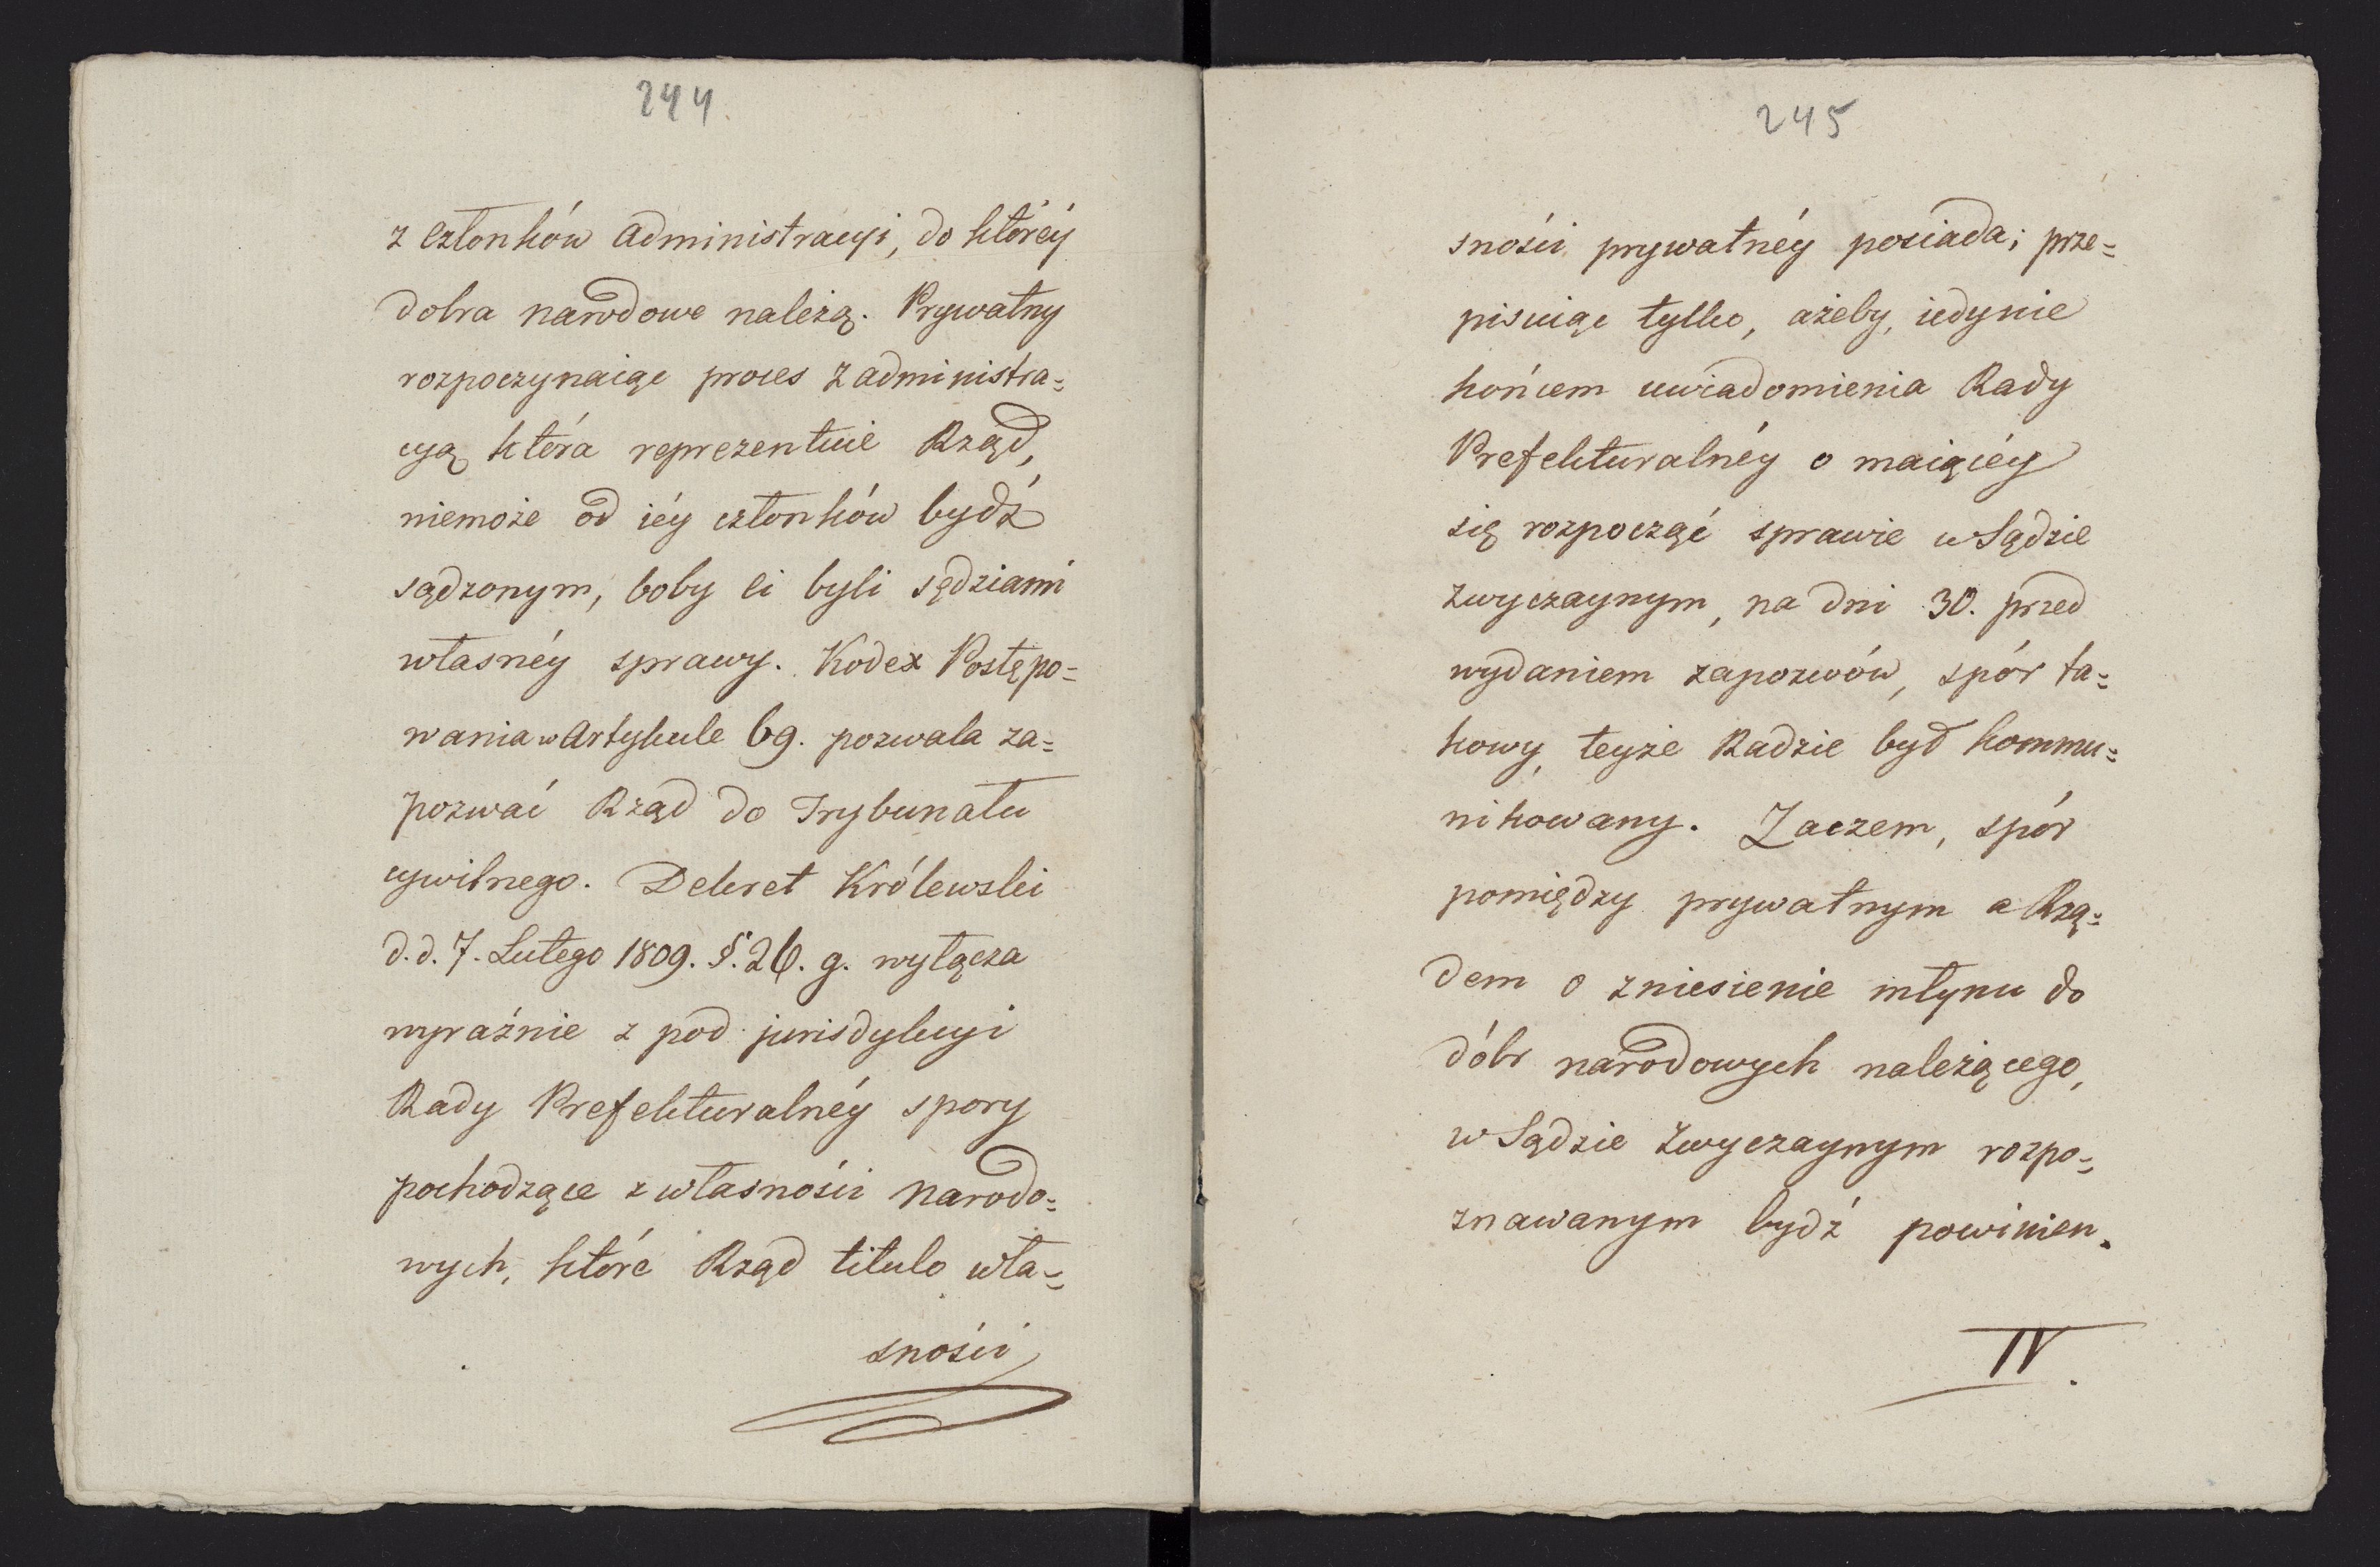 244
z członków administracyi, do któréy
dobra narodowe należą. Prywatny
rozpoczynaiąc proces z administra=
cyą która reprezentuie Rząd,
niemoże od iéy członków bydź
sądzonym, boby ci byli sędziami
własnéy sprawy. Kodex Postępo=
wania w Artykule 69. pozwala za=
pozwać Rząd do Trybunału
cywilnego. Dekret Królewski
d. d. 7. Lutego 1809. §. 26. g. wyłącza
wyraźnie z pod jurisdykcyi
Rady Prefekturalnéy spory
pochodzące z własności narodo=
wych, które Rząd titulo wła=
sności
245
sności prywatnéy posiada; prze=
pisuiąc tylko, ażeby, iedynie
końcem uwiadomienia Rady
Prefekturalnéy o maiącéy
się rozpocząć sprawie w Sądzie
zwyczaynym, na dni 30. przed
wydaniem zapozwów, spór ta=
kowy, teyże Radzie był kommu=
nikowany. Zaczem, spór
pomiędzy prywatnym a Rzą=
dem o zniesienie młynu do
dóbr narodowych należącego,
w Sądzie zwyczaynym rozpo=
znawanym bydź powinien.
IV.